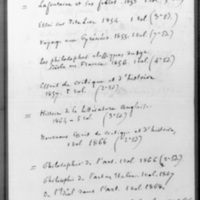 Lafontaine et ses fables 1853 1 vol
Essai sur Tite Live 1854 1 vol (3=50)
Voyage aux Pyrénées 1855 1 vol
Les philosophes classiques du XIXe
siècle en France 1856 1 vol
Essais de critique et d'histoire
1 vol (3=50)
Histoire de la littérature Anglaise
1864 5 vol
Nouveaux Essais de critique et d'histoire,
1 vol 1866
Philosophie de l'art. 1 vol 1866
Philosophie de l'art en Italie. 1 vol 1867
de l'Idéal dans l'art. 1 vol